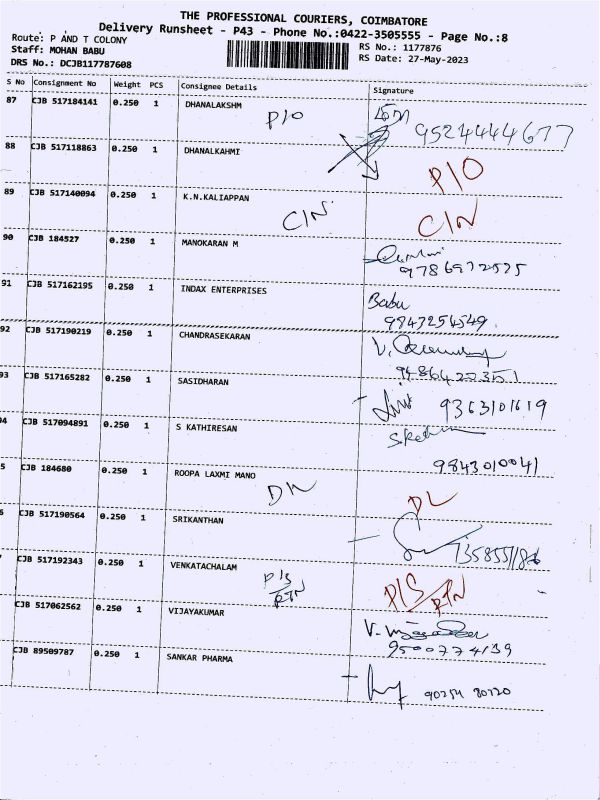 THE PROFESSIONAL COURIERS, COIMBATORE
Delivery Runsheet - P43 - Phone No.:0422-3505555 - Page No.:8
Route: P AND T COLONY
Staff: MOHAN BABU
DRS No.: DCJB117787608
RS No.: 1177876
RS Date: 27-May-2023
S No Consignment No Weight PCS Consignee Details Signature
87 CJB 517184141 0.250 1 DHANALAKSHM P/O 9524444677
88 CJB 517118863 0.250 1 DHANALKAHMI P/O
89 CJB 517140094 0.250 1 K.N.KALIAPPAN C/N C/N
90 CJB 184527 0.250 1 MANOKARAN M
9786972525
91 CJB 517162195 0.250 1 INDAX ENTERPRISES Babu
9943254549
92 CJB 517190219 0.250 1 CHANDRASEKARAN V.
9486422351
93 CJB 517165282 0.250 1 SASIDHARAN 9363101619
94 CJB 517094891 0.250 1 S KATHIRESAN
9843010041
5 CJB 184680 0.250 1 ROOPA LAXMI MANO DL DL
6 CJB 517190564 0.250 1 SRIKANTHAN
CJB 517192343 0.250 1 VENKATACHALAM P/S RTN P/S RTN
CJB 517062562 0.250 1 VIJAYAKUMAR
9500774139
CJB 89509787 0.250 1 SANKAR PHARMA 90254 80220